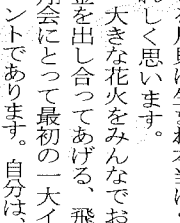 しく思います。
大きな花火をみんなでお
金を出し合ってあげる、飛
翔会にとって最初の一大イ
ントであります。自分は、